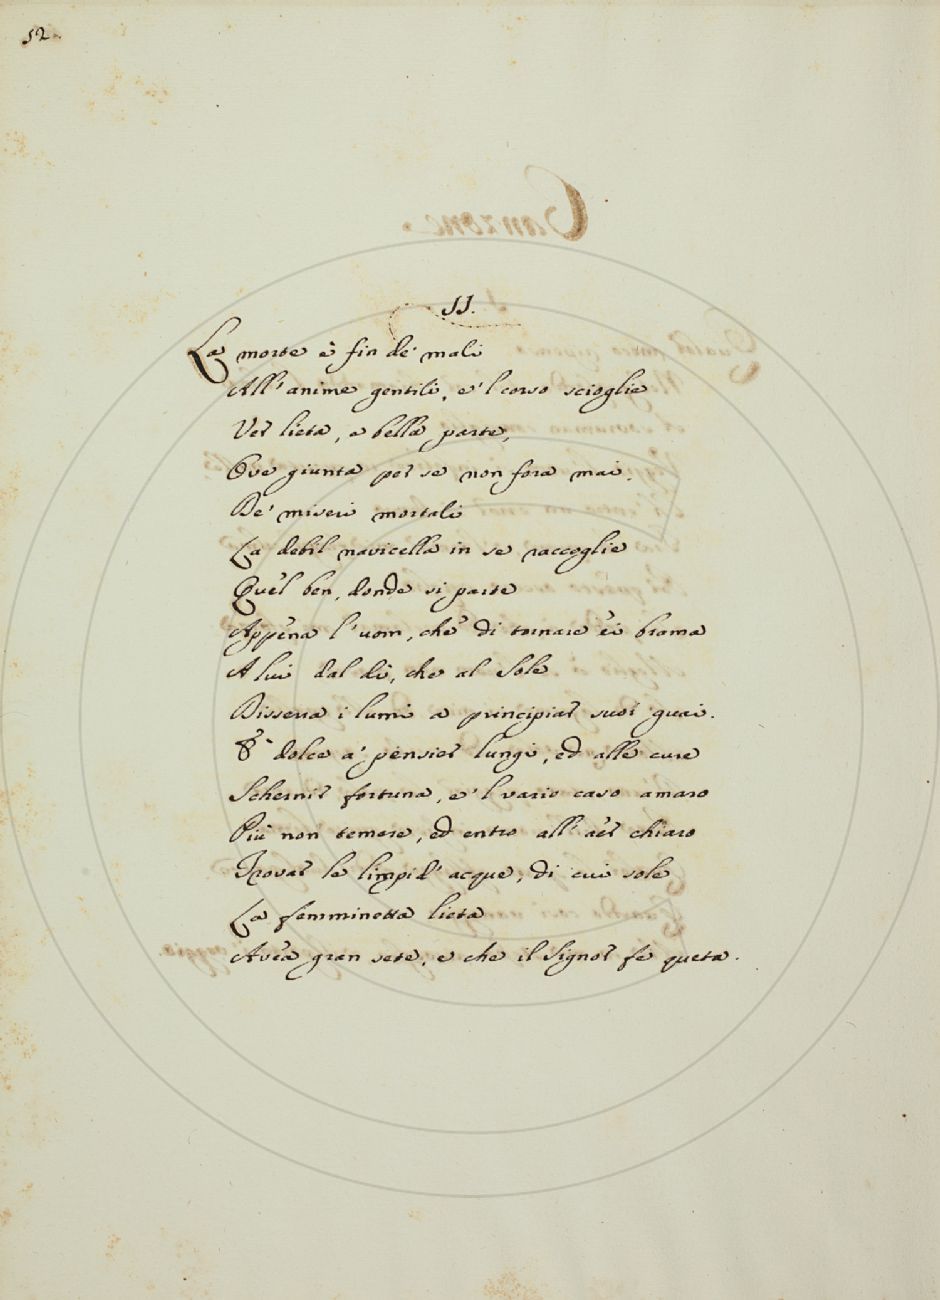 52
II.
La morte è fin de' mali
All'anime gentili, e'l corso scioglie
Ver lieta, e bella parte,
Ove giunta per se non fora mai.
De' miseri mortali
La debil navicella in se raccoglie
Quel ben, donde si parte
Appena l'uom, che di tornare ei brama
A lui dal dì, che al Sole
Disserra i lumi a principiar suoi guai.
È dolce a' pensier lungi, ed alle cure
Schernir fortuna, e'l vario caso amaro
Più non temere, ed entro all'aer chiaro
Trovar le limpid'acque, di cui sole
La femminetta lieta
Avea gran sete, e che il Signor fe queta.